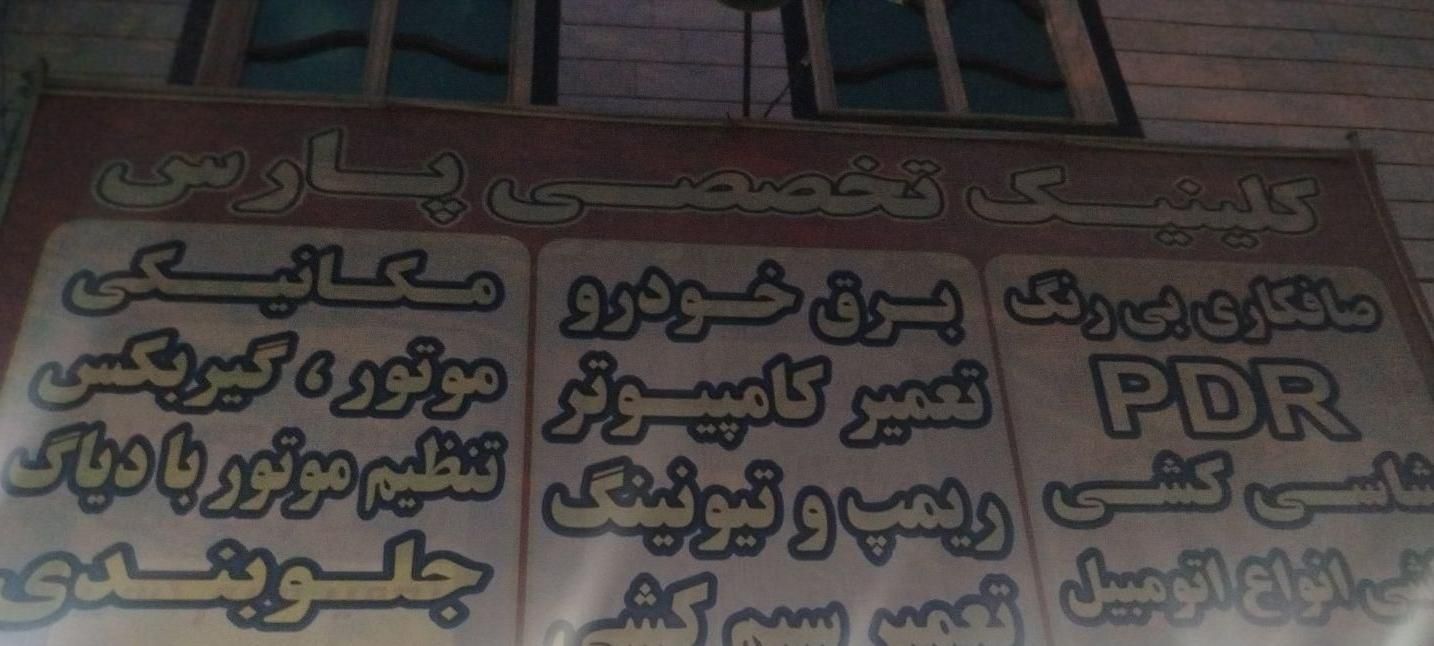 کلینیک تخصصی پارس
صافکاری بی رنگ
PDR
شاسی کشی
انواع اتومبیل
برق خودرو
تعمیر کامپیوتر
ریمپ و تیونینگ
تعمیر سیم کشی
مکانیکی
موتور ، گیربکس
تنظیم موتور با دیاگ
جلوبندی